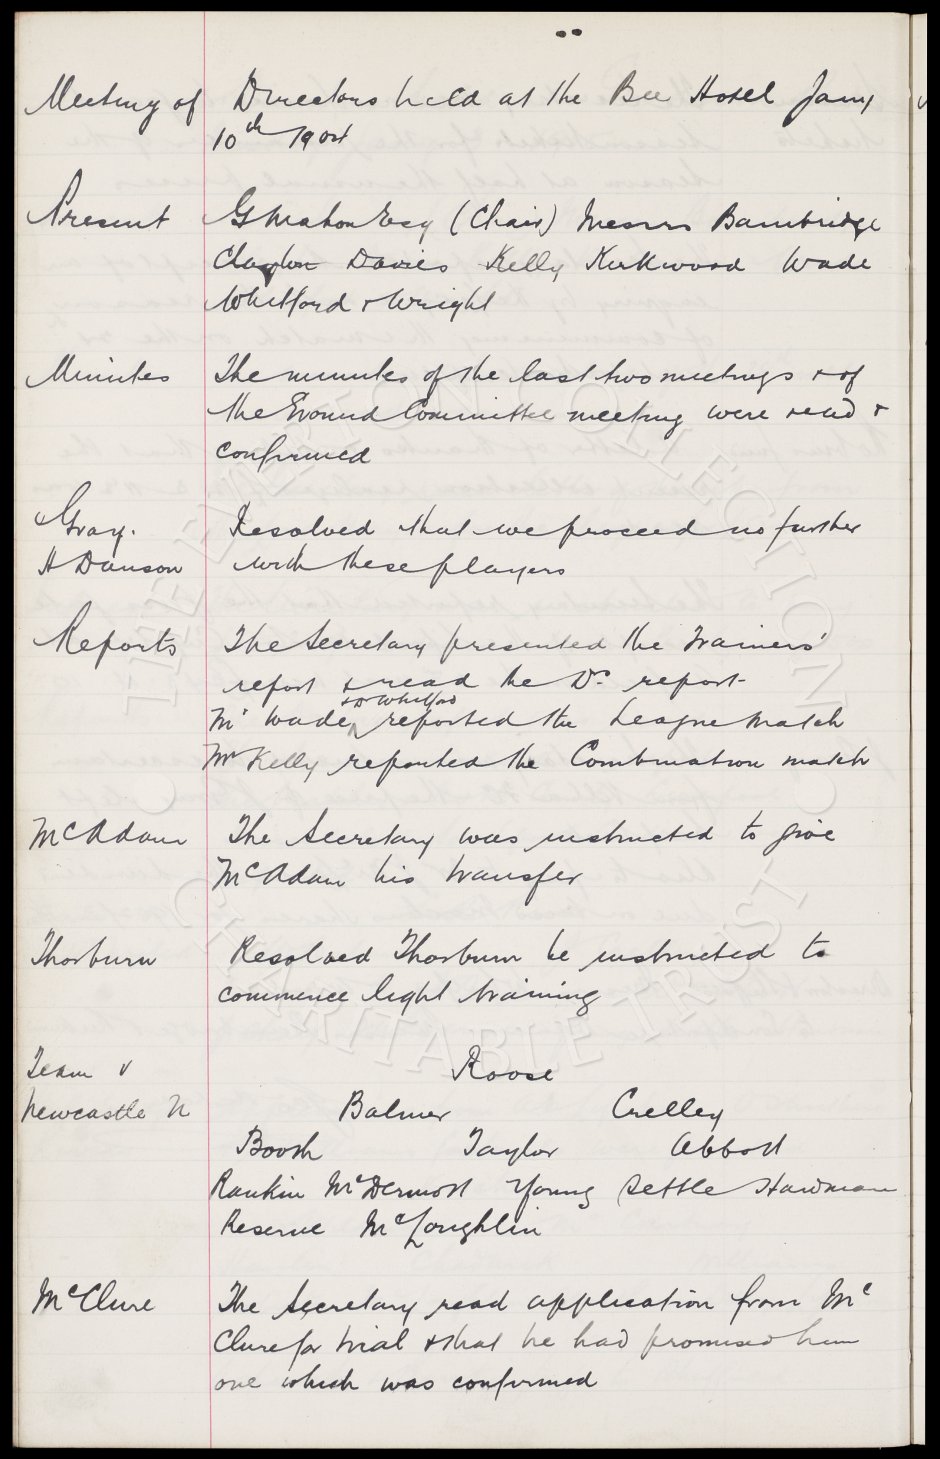 Meeting of Directors held at the Bee Hotel Jany
10th 1905
Present G Mahon Esq (Chair) Messrs Bainbridge
Clayton Davies Kelly Kirkwood Wade
Whitford & Wright
Minutes The minutes of the last two meetings & of
the Ground Committee meeting were read &
confirmed
Gray. Resolved that we proceed no further
H Danson with these players
Reports The Secretary presented the Trainers'
report & read the Dr. report
& Dr Whitford
Mr Wade reported the League match
Mr Kelly reported the Combination match
McAdam The Secretary was instructed to give
McAdam his transfer
Thorburn Resolved Thorburn be instructed to
commence light training
Team v Roose
Newcastle U Balmer Crelley
Booth Taylor Abbott
Rankin McDermott Young Settle Hardman
Reserve McLoughlin
McClure The Secretary read application from Mc
Clure for trial & that he had promised him
one which was confirmed
THE EVERTON COLLECTION
CHARITABLE TRUST